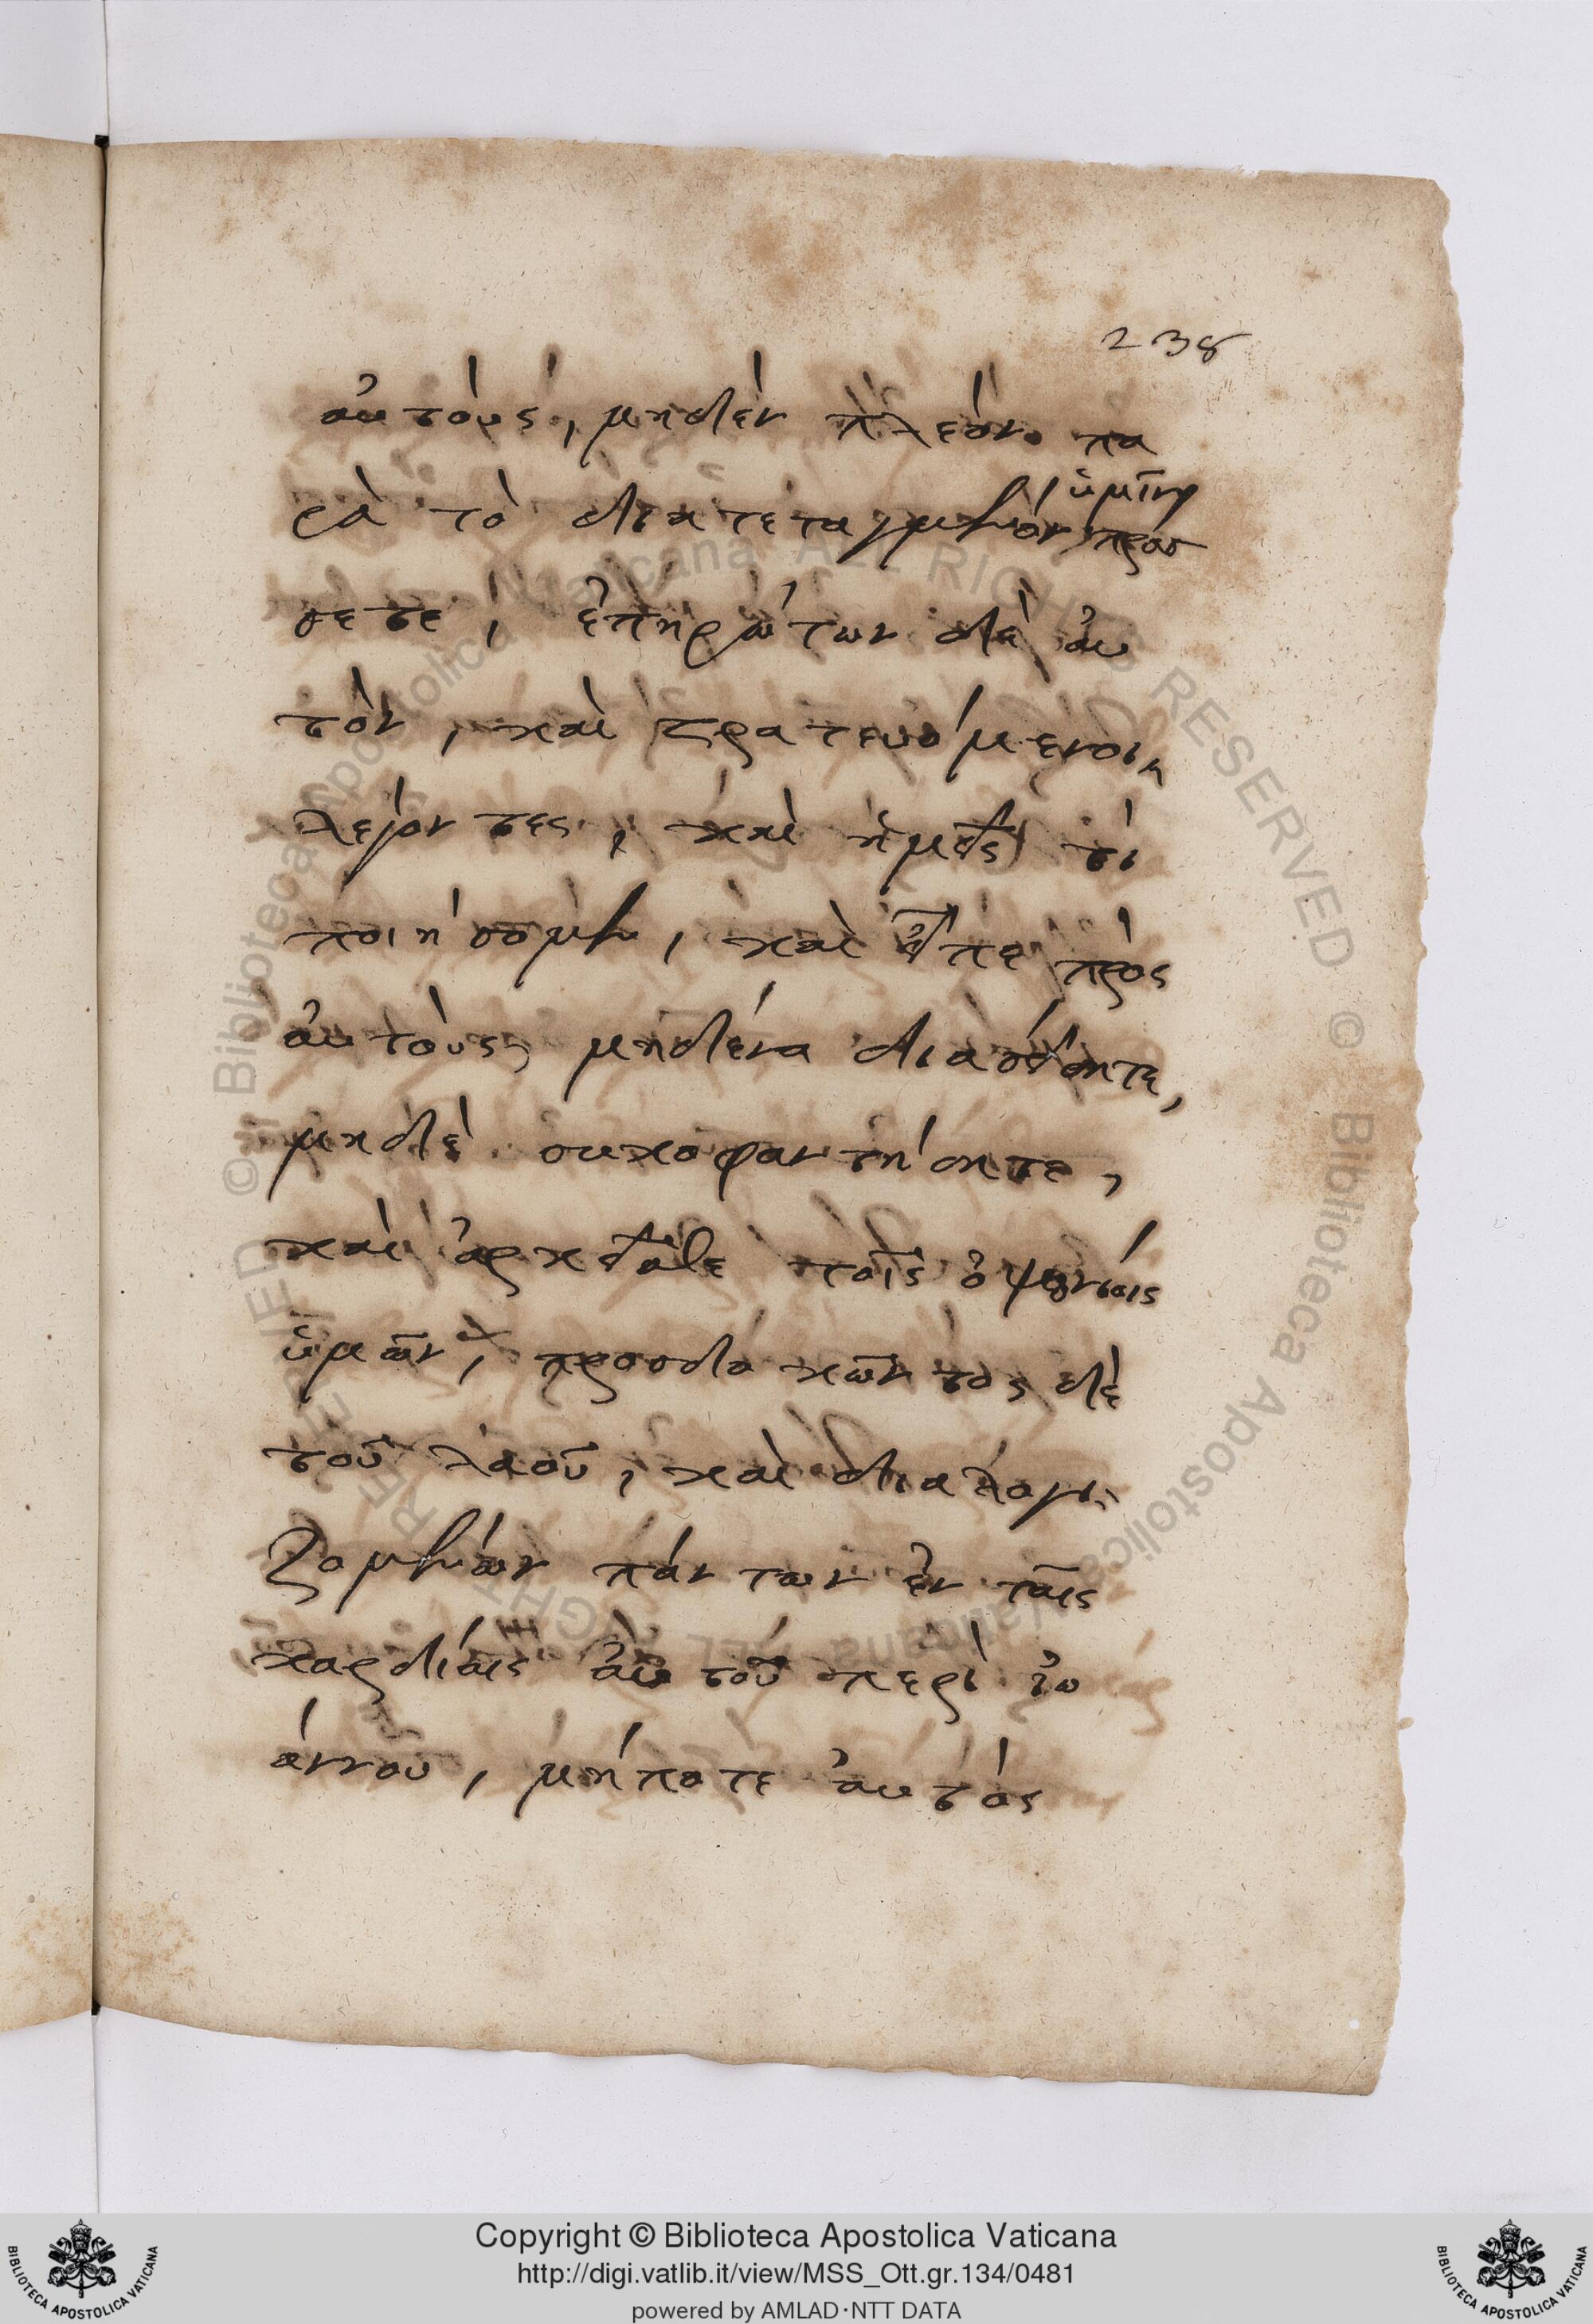 238
αὐτοὺς, μηδὲν πλέον πα
ρὰ τὸ διατεταγμένον ὑμῖν πράσ
σετε, ἐπηρώτων δὲ αὐ
τὸν, καὶ στρατευόμενοι
λέγοντες, καὶ ἡμεῖς τί
ποιήσομεν, καὶ εἶπε πρὸς
αὐτοὺς μηδένα διασείσητε,
μηδὲ συκοφαντήσητε,
καὶ ἀρκεῖσθε τοῖς ὀψωνίοις
ὑμῶν, προσδοκῶντος δὲ
τοῦ λαοῦ, καὶ διαλογι
ζομένων πάντων ἐν ταῖς
καρδίαις αὐτοῦ περὶ ἰω
άννου, μήποτε αὐτὸς
© Biblioteca Apostolica Vaticana ALL RIGHTS RESERVED
Copyright © Biblioteca Apostolica Vaticana
http://digi.vatlib.it/view/MSS_Ott.gr.134/0481
powered by AMLAD·NTT DATA
BIBLIOTECA APOSTOLICA VATICANA
BIBLIOTECA APOSTOLICA VATICANA